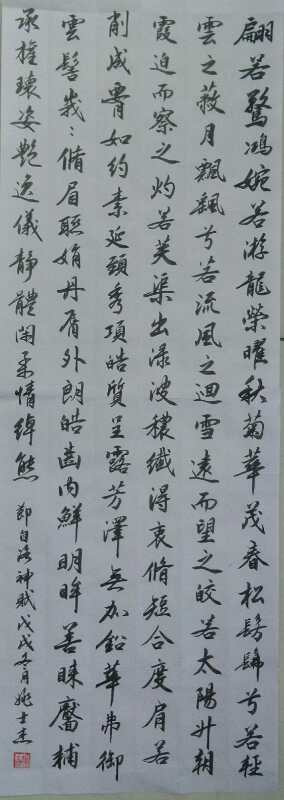 翩若驚鴻婉若游龍榮曜秋菊華茂春松髣髴兮若輕
雲之蔽月飄颻兮若流風之迴雪遠而望之皎若太陽升朝
霞迫而察之灼若芙渠出淥波穠纖得衷脩短合度肩若
削成腰如約素延頸秀項皓質呈露芳澤無加鉛華弗御
雲髻峩〻脩眉聯娟丹脣外朗皓齒内鮮明眸善睞靨輔
承權瓌姿艷逸儀靜體閑柔情綽態 節自洛神賦戊戌冬月姚士杰